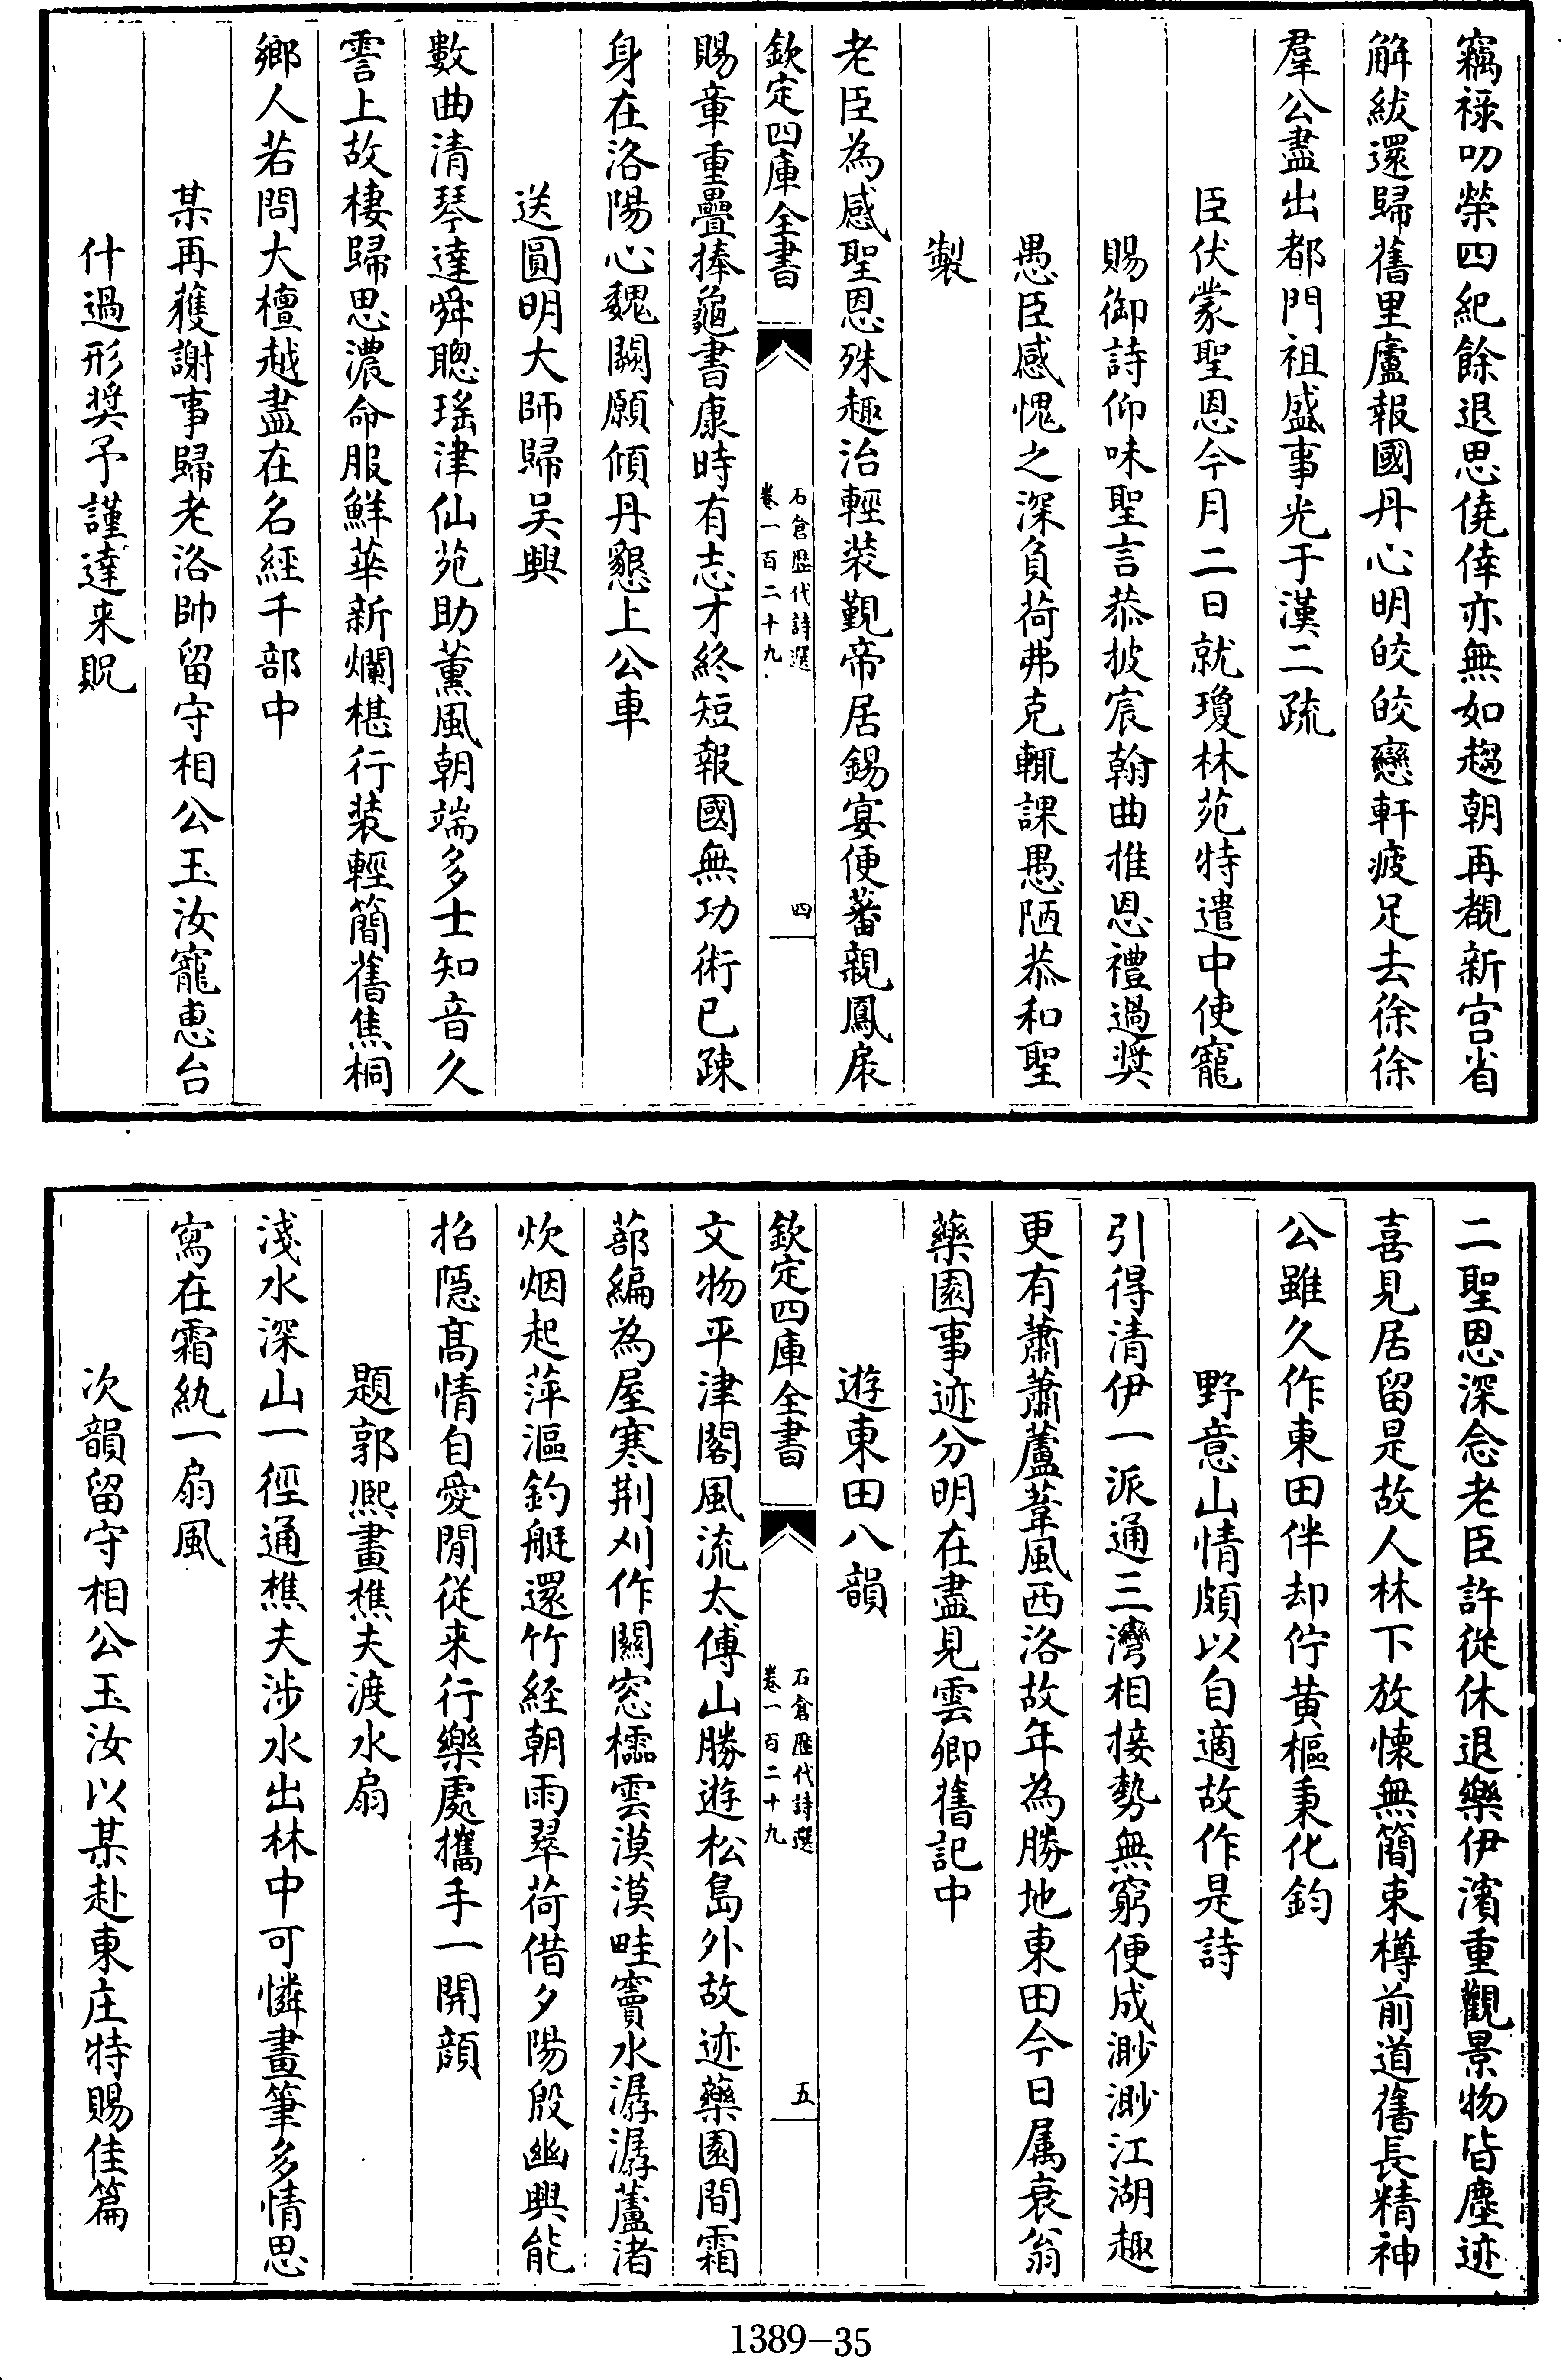 竊祿叨榮四紀餘退思僥倖亦無如趨朝再覩新宫省
解紱還歸舊里廬報國丹心明皎皎戀軒疲足去徐徐
羣公盡出都門祖盛事光于漢二疏
臣伏蒙聖恩今月二日就瓊林苑特遣中使寵
賜御詩仰味聖言恭披宸翰曲推恩禮過奨
愚臣感愧之深負荷弗克輒課愚陋恭和聖
製
老臣為感聖恩殊趣治輕装覲帝居錫宴便蕃親鳳扆
欽定四庫全書
石倉歴代詩選
卷一百二十九
四
賜章重疊捧龜書康時有志才終短報國無功術已踈
身在洛陽心魏闕願傾丹懇上公車
送圓明大師歸吴興
數曲清琴達舜聰瑤津仙苑助薫風朝端多士知音久
霅上故棲歸思濃命服鮮華新爛椹行装輕簡舊焦桐
鄉人若問大檀越盡在名經千部中
某再獲謝事歸老洛帥留守相公玉汝寵恵台
什過形奨予謹達来貺
二聖恩深念老臣許從休退樂伊濱重觀景物皆塵迹
喜見居留是故人林下放懷無簡束樽前道舊長精神
公雖久作東田伴却佇黄樞秉化鈞
野意山情頗以自適故作是詩
引得清伊一派通三灣相接勢無窮便成渺渺江湖趣
更有蕭蕭蘆葦風西洛故年為勝地東田今日属衰翁
藥園事迹分明在盡見雲卿舊記中
遊東田八韻
欽定四庫全書
石倉歴代詩選
卷一百二十九
五
文物平津閣風流太傅山勝遊松島外故迹藥園間霜
蔀編為屋寒荆刈作關窓櫺雲漠漠畦竇水潺潺蘆渚
炊烟起萍漚釣艇還竹経朝雨翠荷借夕陽殷幽興能
招隠髙情自愛閒從来行樂處攜手一開顔
題郭熈畫樵夫渡水扇
淺水深山一徑通樵夫涉水出林中可憐畫筆多情思
寫在霜紈一扇風
次韻留守相公玉汝以某赴東庄特賜佳篇
1389-35